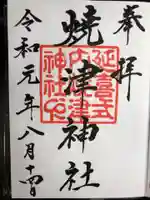 奉拝
焼津神社
延喜式
内焼津
神社印
令和元年八月十四日